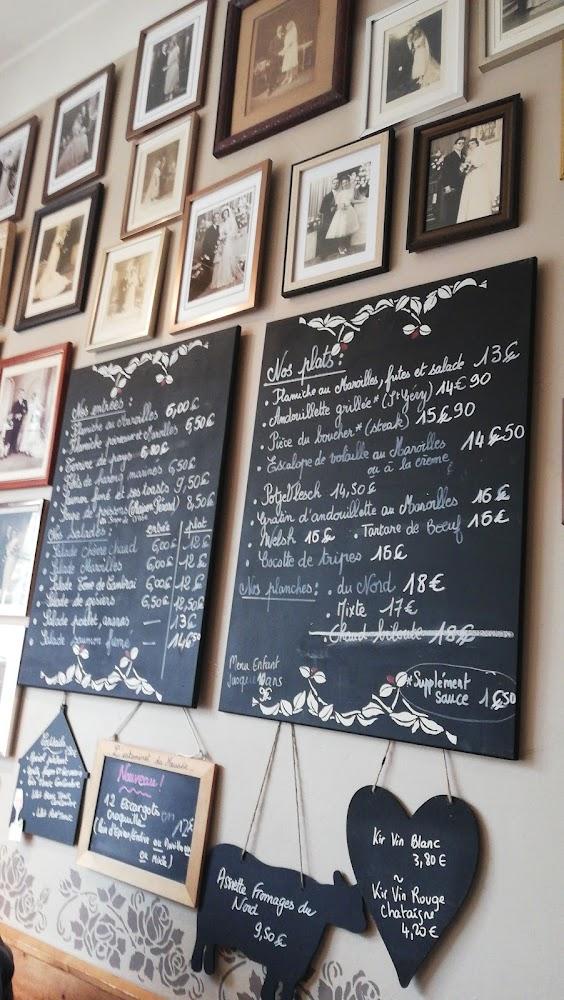 Nos entrées :
• Flamiche au Maroilles 6,00€
• Flamiche poireaux et Maroilles 6,50€
• Terrine de pays 6,80€
• Filets de hareng marinés 6,50€
• Saumon fumé et ses toasts 9,50€
• Soupe de poissons (Maison Gérard) 8,50€
Nos salades : entrée plat
Salade Chèvre chaud 6,00€ 12€
Salade Maroilles 6,00€ 12€
Salade Tome de Cambrai 6,00€ 12€
Salade de gésiers 6,50€ 12,50€
Salade poulet ananas — 13€
Salade saumon fumé — 14€50
Nos plats :
• Flamiche au Maroilles, frites et salade 13€
• Andouillette grillée* (St Géry) 14€90
• Pièce du boucher* (steak) 15€90
• Escalope de volaille au Maroilles 14€50
ou à la crème
• Potjevlesch 14,50€
• Gratin d'andouillette au Maroilles 16€
• Welsh 15€ • Tartare de Boeuf 16€
• Cocotte de tripes 15€
Nos planches : • du Nord 18€
• Mixte 17€
Chaud biloute 18€
Menu Enfant
Jusque 10 ans
9€
* Supplément
sauce 1€50
Cocktails
L'estaminet du Musée
Nouveau !
12 Escargots en
croquilles 12€
ou Mixte)
Assiette Fromages du
Nord
9,50€
Kir Vin Blanc
3,80€
~
Kir Vin Rouge
Chataigne
4,20€